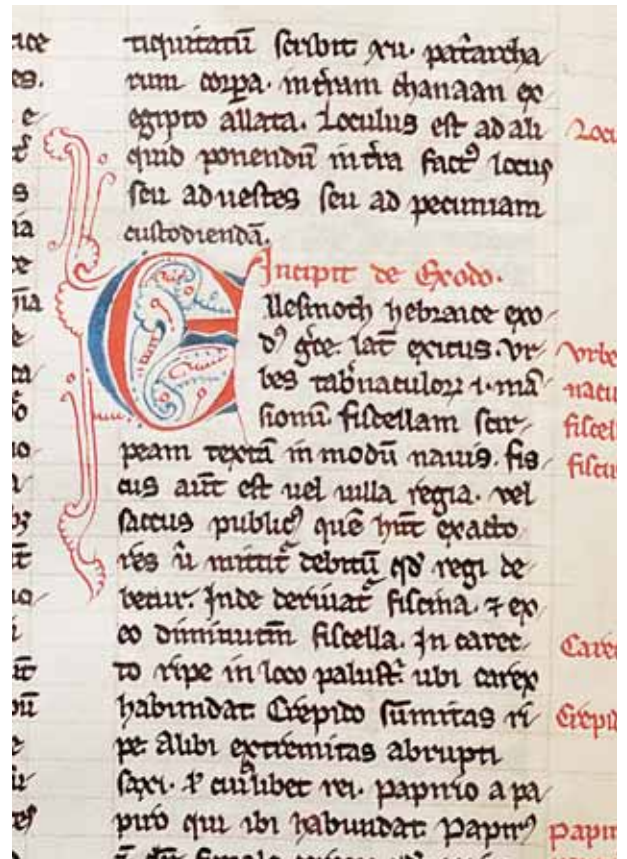 tiquitatū scribit xii. pat̄archa
rum corp̄a. in t̄ram chanaan ex
egipto allata. Loculus est ad ali
quid ponendū in t̄ra factꝰ locus
seu ad uestes seu ad pecuniam
custodiendā.
Incipit de Exodo.
Ellesmoth hebraice exo
dꝰ gr̄ce. lat̄ exitus. Vr
bes tab̄naculoꝝ .i. mā
sionū. fiscellam scir
peam textā in modū nauis. fis
cus aūt est uel uilla regia. vel
saccus publicꝰ quē hn̄t exacto
res debitū regi de
betur. Inde deriuat̄ fiscina. ⁊ ex
eo diminutiū fiscella. In carec
to ripe in loco palust̄. ubi carex
habundat. Crepido sūmitas ri
pe. Alibi extremitas abrupti
saxi. cuiꝰlibet rei. papirio a pa
piro qui ibi habundat. Papirꝰ
Locu
Vrbe
nacu
fiscell
fiscus
Carec
Crepid
papir